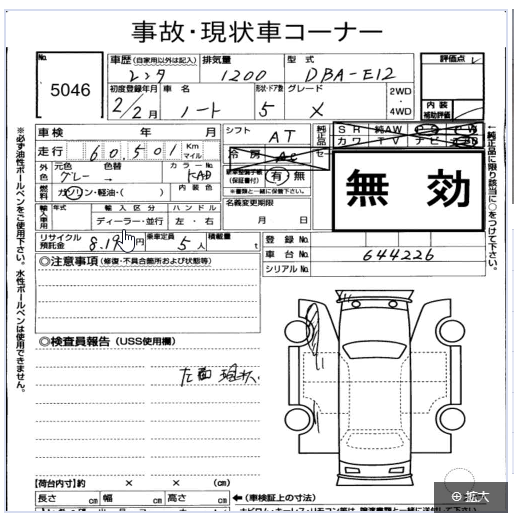 事故・現状車コーナー
No.
5046
車歴(自家用以外は記入)
レンタ
排気量
1200
型式
DBA-E12
評価点
初度登録年月
2/2月
車名
ノート
形状・ドア数
5
グレード
X
2WD
・
4WD
内装
補助評価
車検 年 月
シフト
AT
純正品
SR 純AW
カワ TV ナビ
走行
60,501
Km
マイル
冷房
AC
無効
外色
元色 色替
グレー →
カラーNo.
KAD
(保証書付)
有 無
※書類と一緒に保管下さい。
燃料
ガソリン・軽油・( )
内装色
名義変更期限
月 日
輸入車用
年式
輸入区分
ディーラー・並行
ハンドル
左・右
リサイクル
預託金
円
乗車定員
5人
積載量
t
登録No.
車台No.
644226
シリアルNo.
◎注意事項(修復・不具合箇所および状態等)
◎検査員報告(USS使用欄)
左面
【荷台内寸】約 × × (cm)
長さ cm 幅 cm 高さ cm
←(車検証上の寸法)
※必ず油性ボールペンをご使用下さい。水性ボールペンは使用できません。
←純正品に限り該当に○をつけて下さい。
拡大